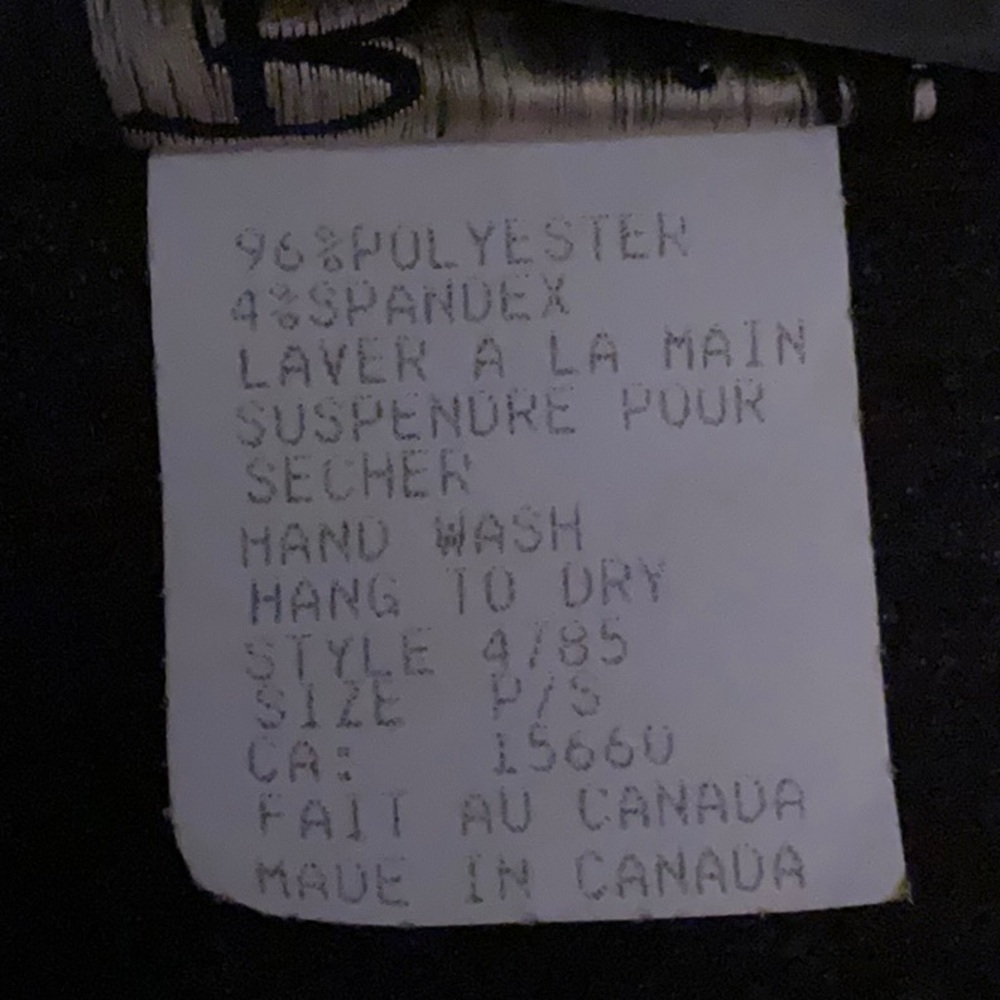 96%POLYESTER
4%SPANDEX
LAVER A LA MAIN
SUSPENDRE POUR
SECHER
HAND WASH
HANG TO DRY
STYLE 4785
SIZE P/S
CA: 15660
FAIT AU CANADA
MADE IN CANADA